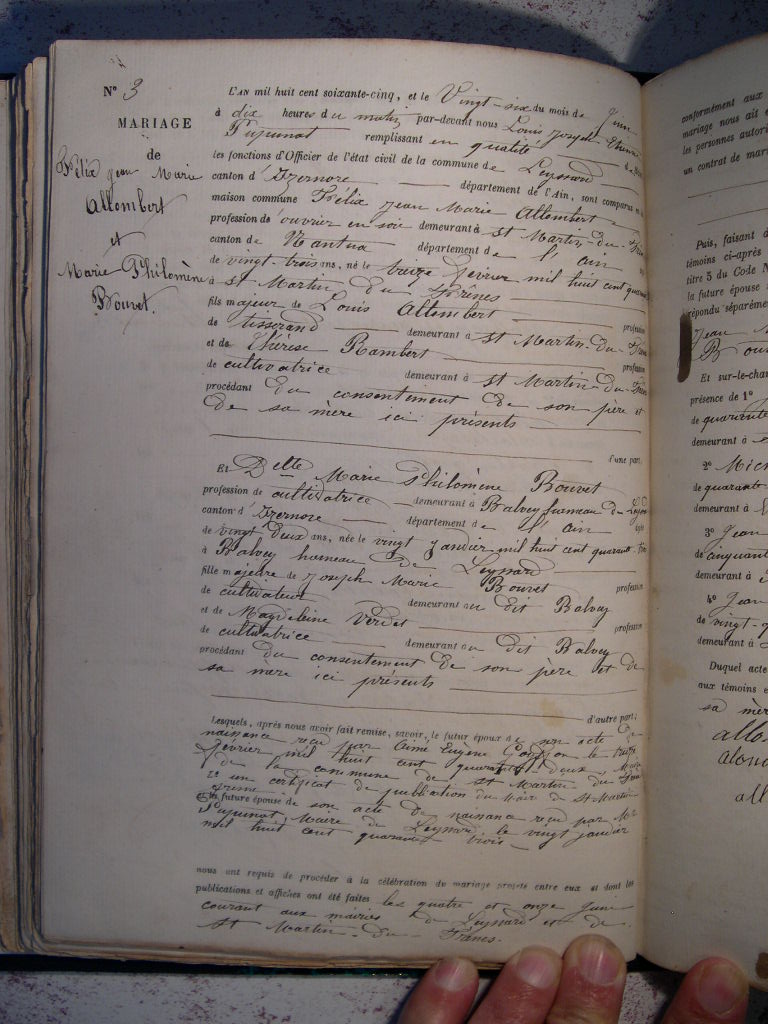 N° 3
MARIAGE
de
Félix Jean Marie
Allombert
et
Marie Philomène
Bouvet.
L'AN mil huit cent soixante-cinq, et le Vingt-six du mois de Juin
à dix heures du matin par-devant nous Louis Joseph Etienne
Pupunat remplissant en qualité de
les fonctions d'Officier de l'état civil de la commune de Leyssard
canton d'Izernore département de l'Ain, sont comparus en la
maison commune Félix Jean Marie Allombert
profession de ouvrier en soie demeurant à St Martin-du-Frêne
canton de Nantua département de l'ain
de vingt-trois ans, né le treize février mil huit cent quarante
à St Martin du Frênes
fils majeur de Louis Allombert profession
de tisserand demeurant à St Martin-du-Frêne
et de Thérèse Rambert profession
de cultivatrice demeurant à St Martin-du-Frêne
procédant du consentement de son père et
de sa mère ici présents
d'une part,
Et Delle Marie Philomène Bouvet
profession de cultivatrice demeurant à Balvay hameau de Leyssard
canton d'Izernore département de l'ain
de vingt deux ans, née le vingt janvier mil huit cent quarante-trois
à Balvay hameau de Leyssard
fille majeure de Joseph Marie Bouvet profession
de cultivateur demeurant au dit Balvay
et de Magdeleine Verdet profession
de cultivatrice demeurant au dit Balvay
procédant du consentement de son père et de
sa mère ici présents
d'autre part;
Lesquels, après nous avoir fait remise, savoir, le futur époux de son acte de
naissance reçu par Aimé Eugène le treize
février mil huit cent quarante-deux, Maire
de la commune de St Martin du Frêne
2° un certificat de publication du Maire de St Martin
et la future épouse de son acte de naissance reçu par Mr
Pupunat, Maire de Leyssard le vingt janvier
mil huit cent quarante trois
nous ont requis de procéder à la célébration du mariage projeté entre eux et dont les
publications et affiches ont été faites les quatre et onze Juin
courant aux mairies de Leyssard et de
St Martin-du-Frênes.
conformément aux
mariage nous ait é
les personnes autori
un contrat de mari
Puis, faisant d
témoins ci-après
titre 5 du Code N
la future épouse
répondu séparéme
Jean M
Bou
Et sur-le-cham
présence de 1°
de quarante
demeurant à
2° Mich
de quarante
demeurant à
3° Jean
de cinquant
demeurant à
4° Jean
de vingt-q
demeurant à
Duquel acte
aux témoins e
sa mèr
allo
alond
all